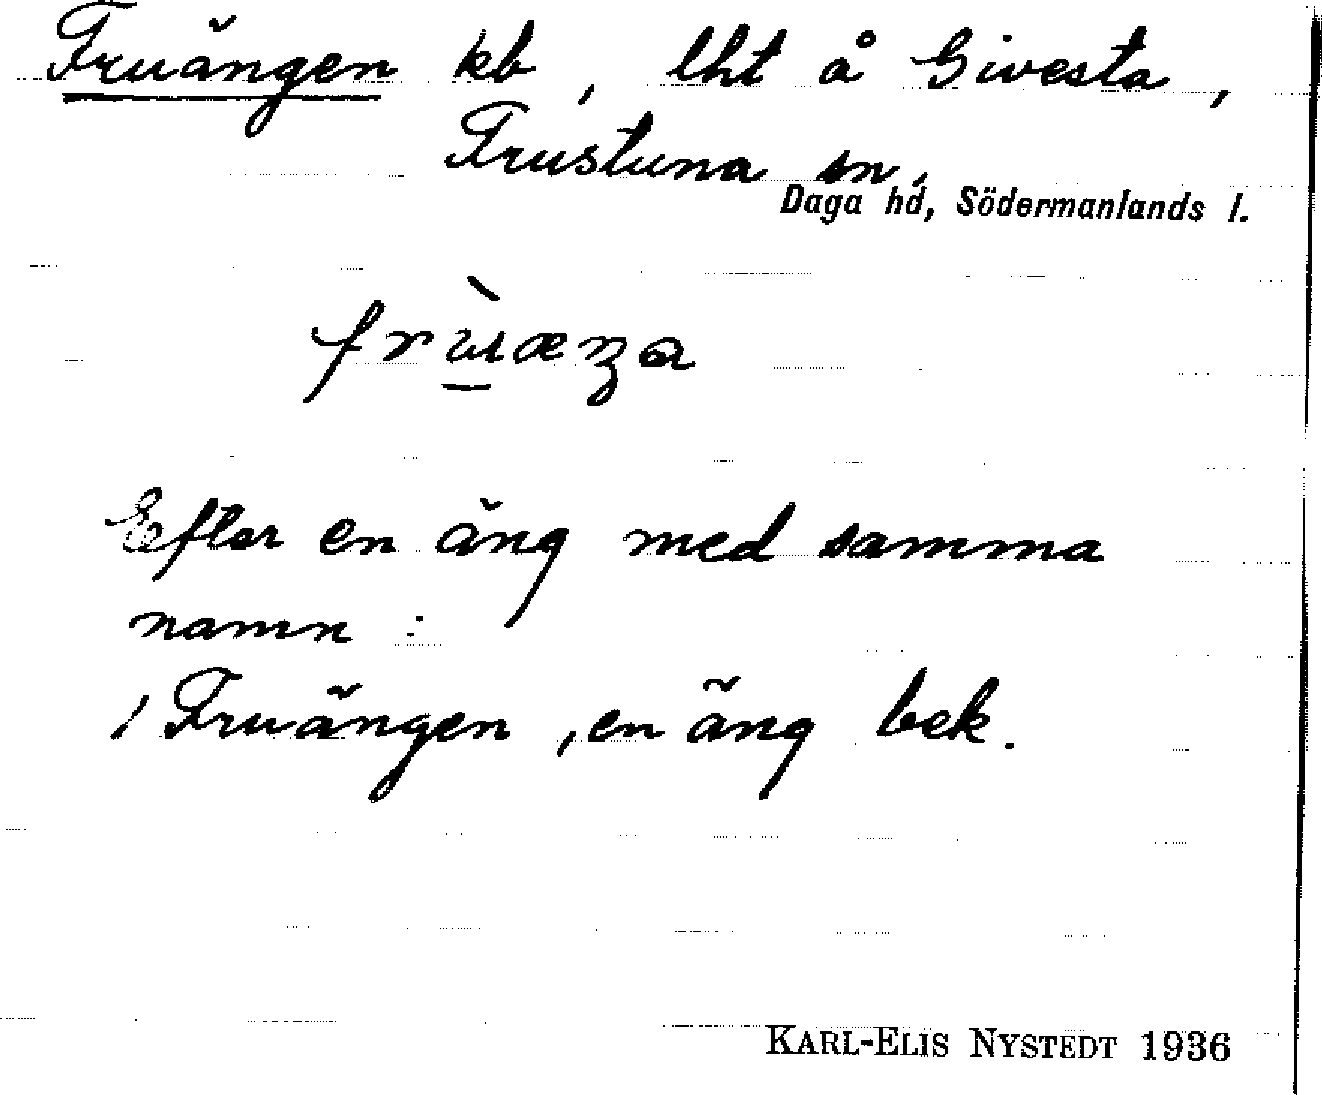 Fruängen kb, lht å Givesta,
Frustuna sn,
Daga hd, Södermanlands l.
frùæŋa
Efter en äng med samma
namn :
1 Fruängen, en äng bek.
KARL-ELIS NYSTEDT 1936